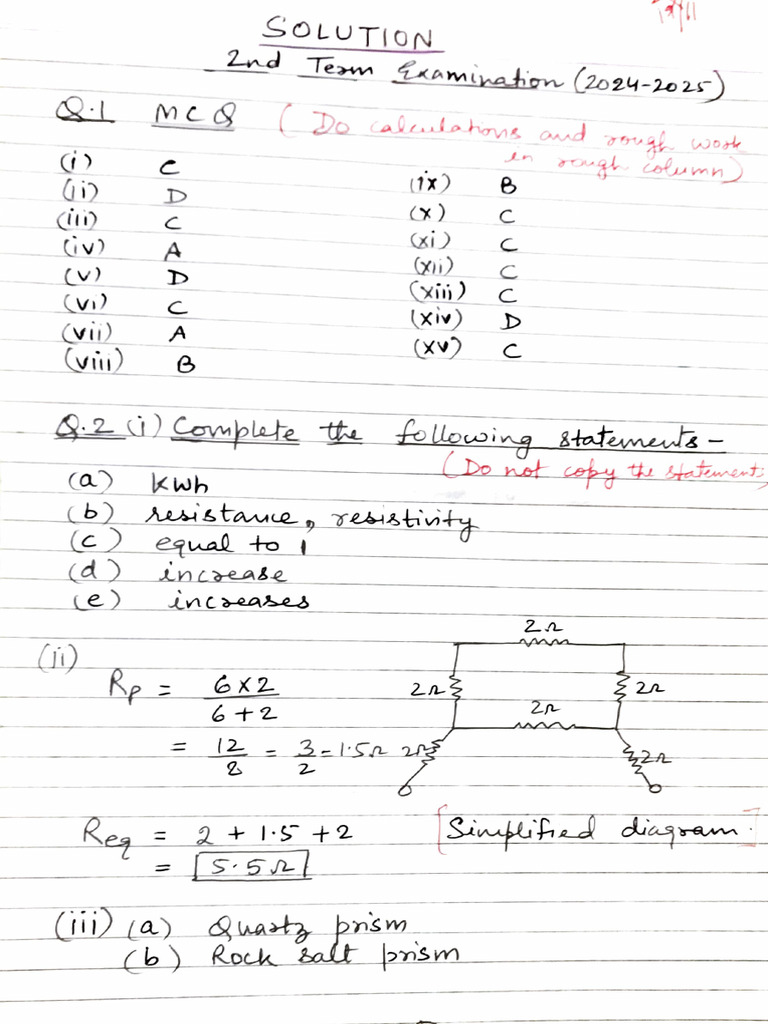 SOLUTION
2nd Term Examination (2024-2025)
Q.1 MCQ (Do calculations and rough work
in rough column)
(i) C
(ii) D
(iii) C
(iv) A
(v) D
(vi) C
(vii) A
(viii) B
(ix) B
(x) C
(xi) C
(xii) C
(xiii) C
(xiv) D
(xv) C
Q.2 (i) Complete the following statements -
(Do not copy the statements)
(a) kwh
(b) resistance, resistivity
(c) equal to 1
(d) increase
(e) increases
(ii)
Rp = 6×2 / 6+2
= 12/8 = 3/2 = 1.5Ω
2Ω
2Ω
2Ω
2Ω
2Ω
2Ω
Req = 2 + 1.5 + 2
= 5.5Ω
[Simplified diagram.]
(iii) (a) Quartz prism
(b) Rock salt prism